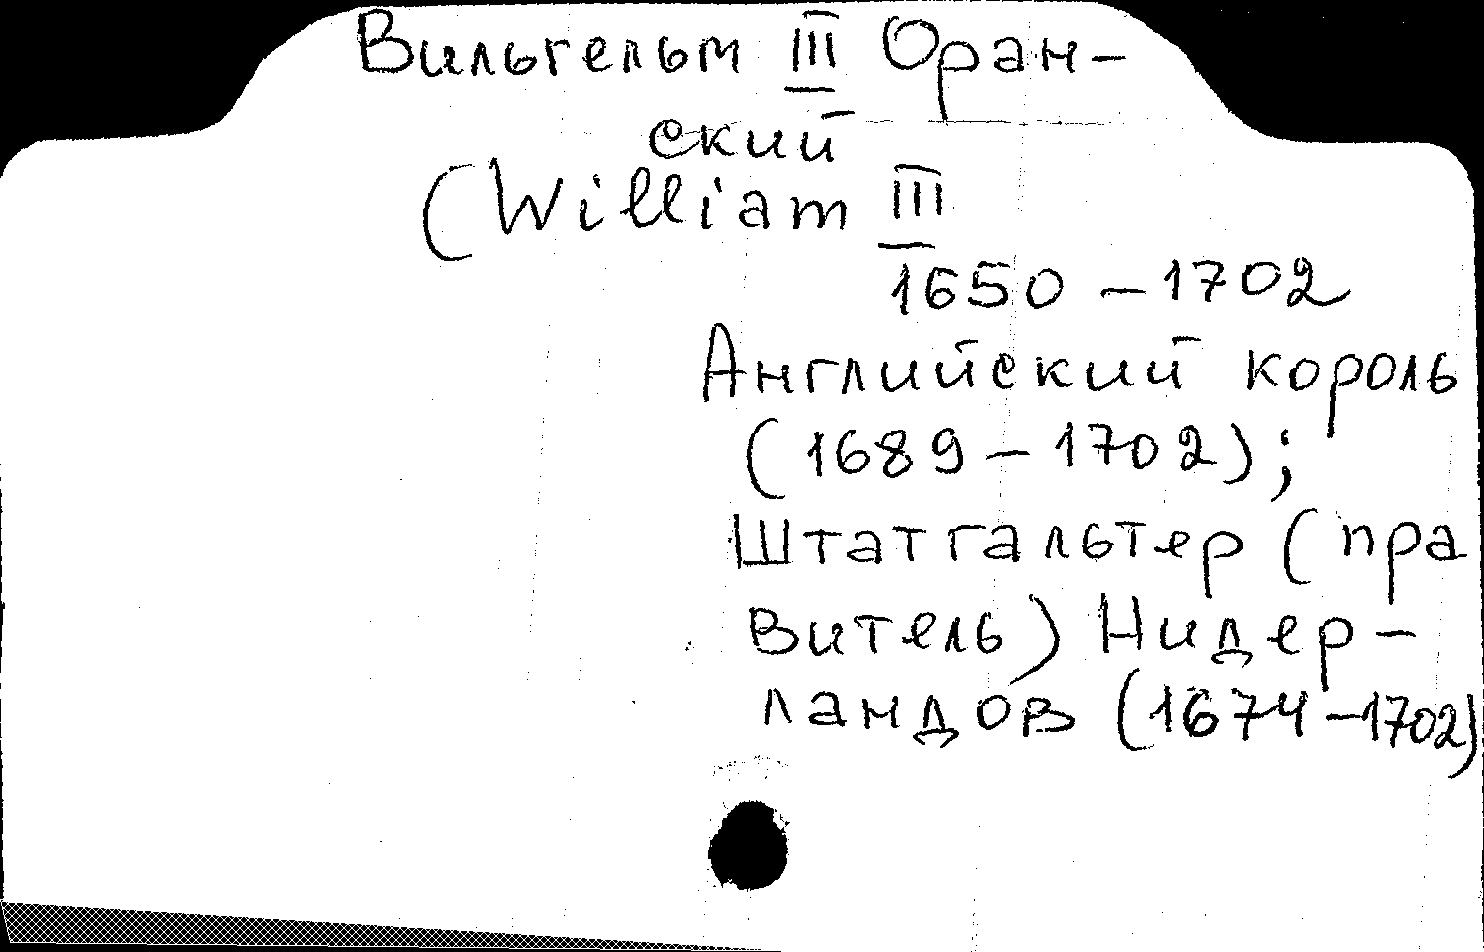 Вильгельм III Оран-
ский
(William III
1650 – 1702
Английский король
(1689 – 1702);
Штатгальтер (пра
витель) Нидер-
ландов (1674 – 1702)